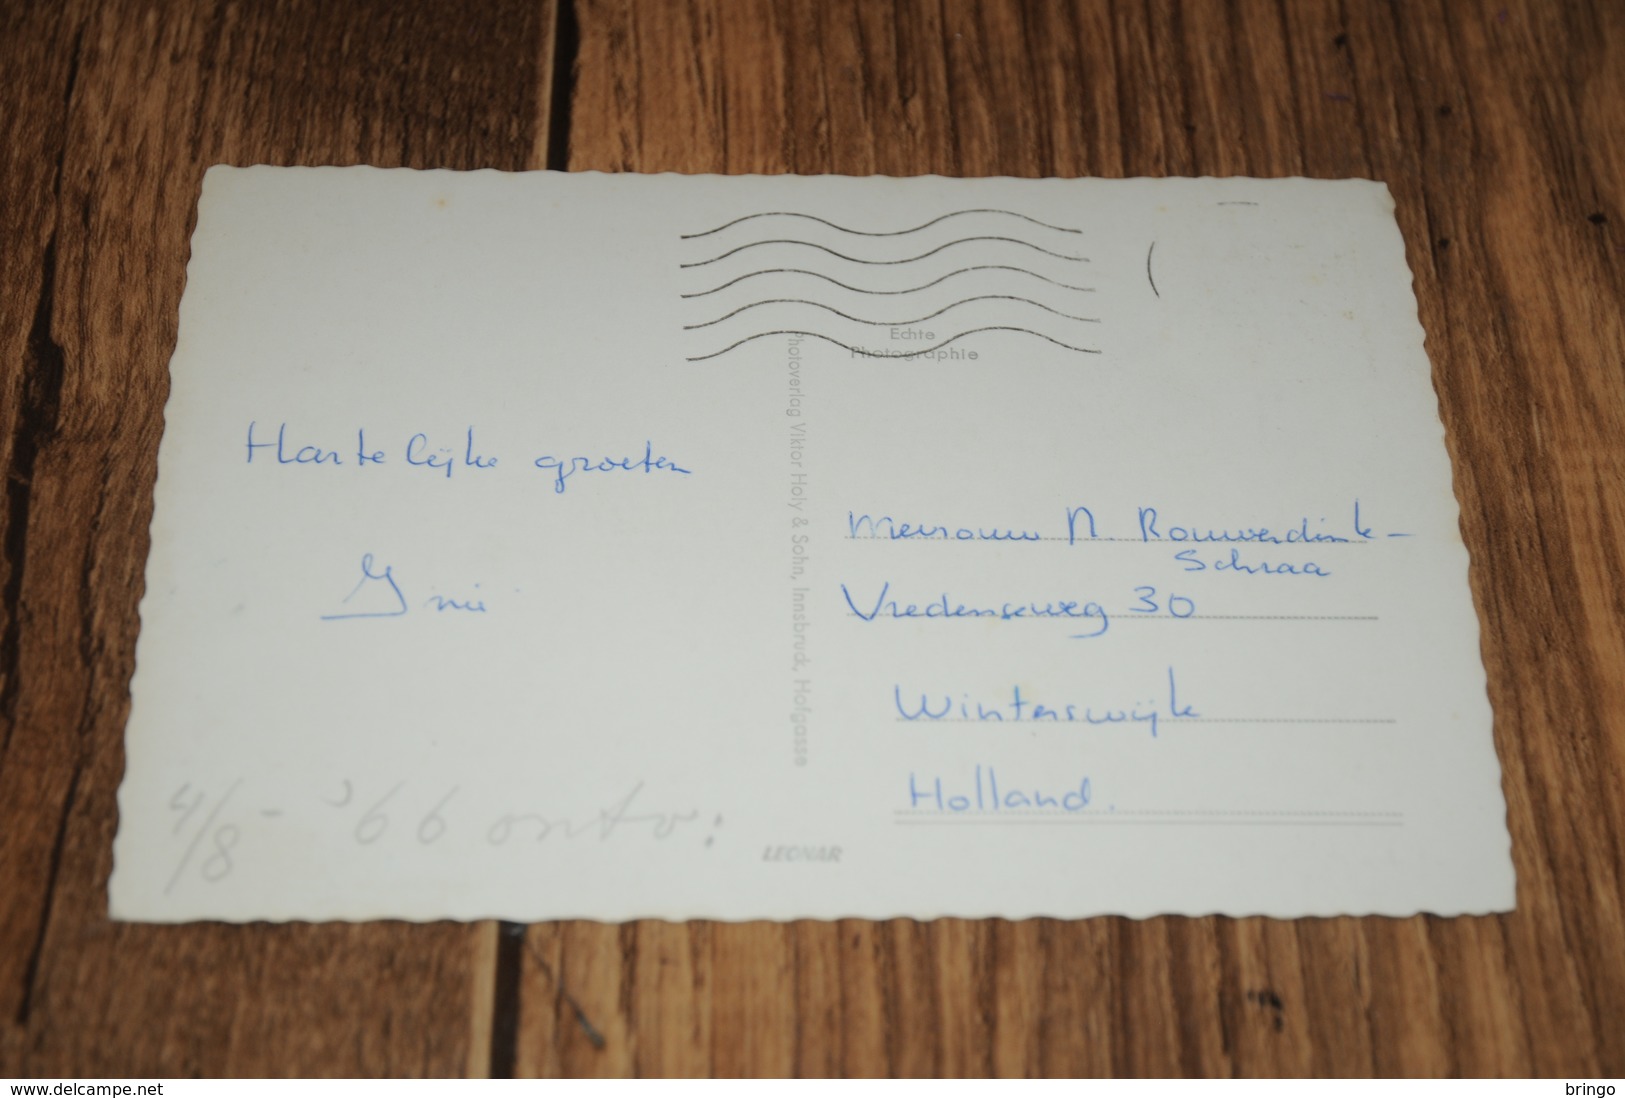 Echte
Photographie
Photoverlag Viktor Holy & Sohn, Innsbruck, Hofgasse
Hartelijke groeten
Mevrouw N. Rouwerdink-
Schraa
Vredenseweg 30
Winterswijk
Holland.
4/8 - '66 ontv:
LEONAR
www.delcampe.net
bringo